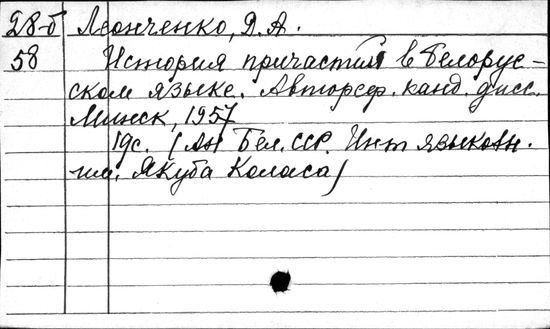 28-б Леонченко, Д.А.
58 История причастий в белорус-
ском языке. Автореф. канд. дисс.
Минск, 1957
19с. (АН Бел.ССР. Инт языкозн.
им. Якуба Коласа)